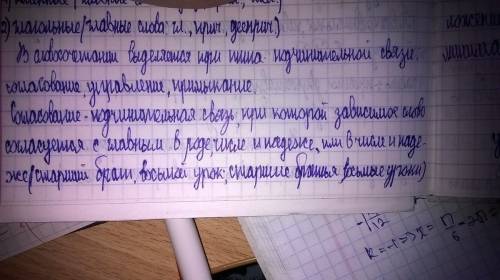 2) глагольные(главные слова: гл., прич., дееприч.)
В словосочетании выделяется три типа подчинительной связи:
согласование, управление, примыкание.
Согласование-подчинительная связь, при которой зависимое слово
согласуется с главным в роде, числе и падеже, или в числе и паде-
же(старший брат, восьмой урок; старшие братья, восьмые уроки)
k=-1=>x=